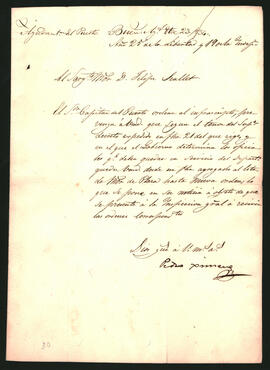 Ayudant del Puerto
Buenos Ay.s
Año 25 de la Libertad y 19 de la Indep.
Al Sarg.to May.r D. Felipe Ballet
El S.or Capitan del Puerto ordena al infrascripto, pre-
venga a Vmd. que segun el tenor del Sup.or
decreto expedido en fha 21 del que rige y
en el que el Gobierno determina los oficia-
les q.e deben quedar en servicio del Depart.o
queda Vmd. desde en fha agregado al
de Plaza hasta nueva orden; lo
que se pone en su noticia a efecto de que
se presente a la Inspeccion gral. á recibir
las ordenes
Dios gue. a V. m.s a.s
Pedro Ximeno
30